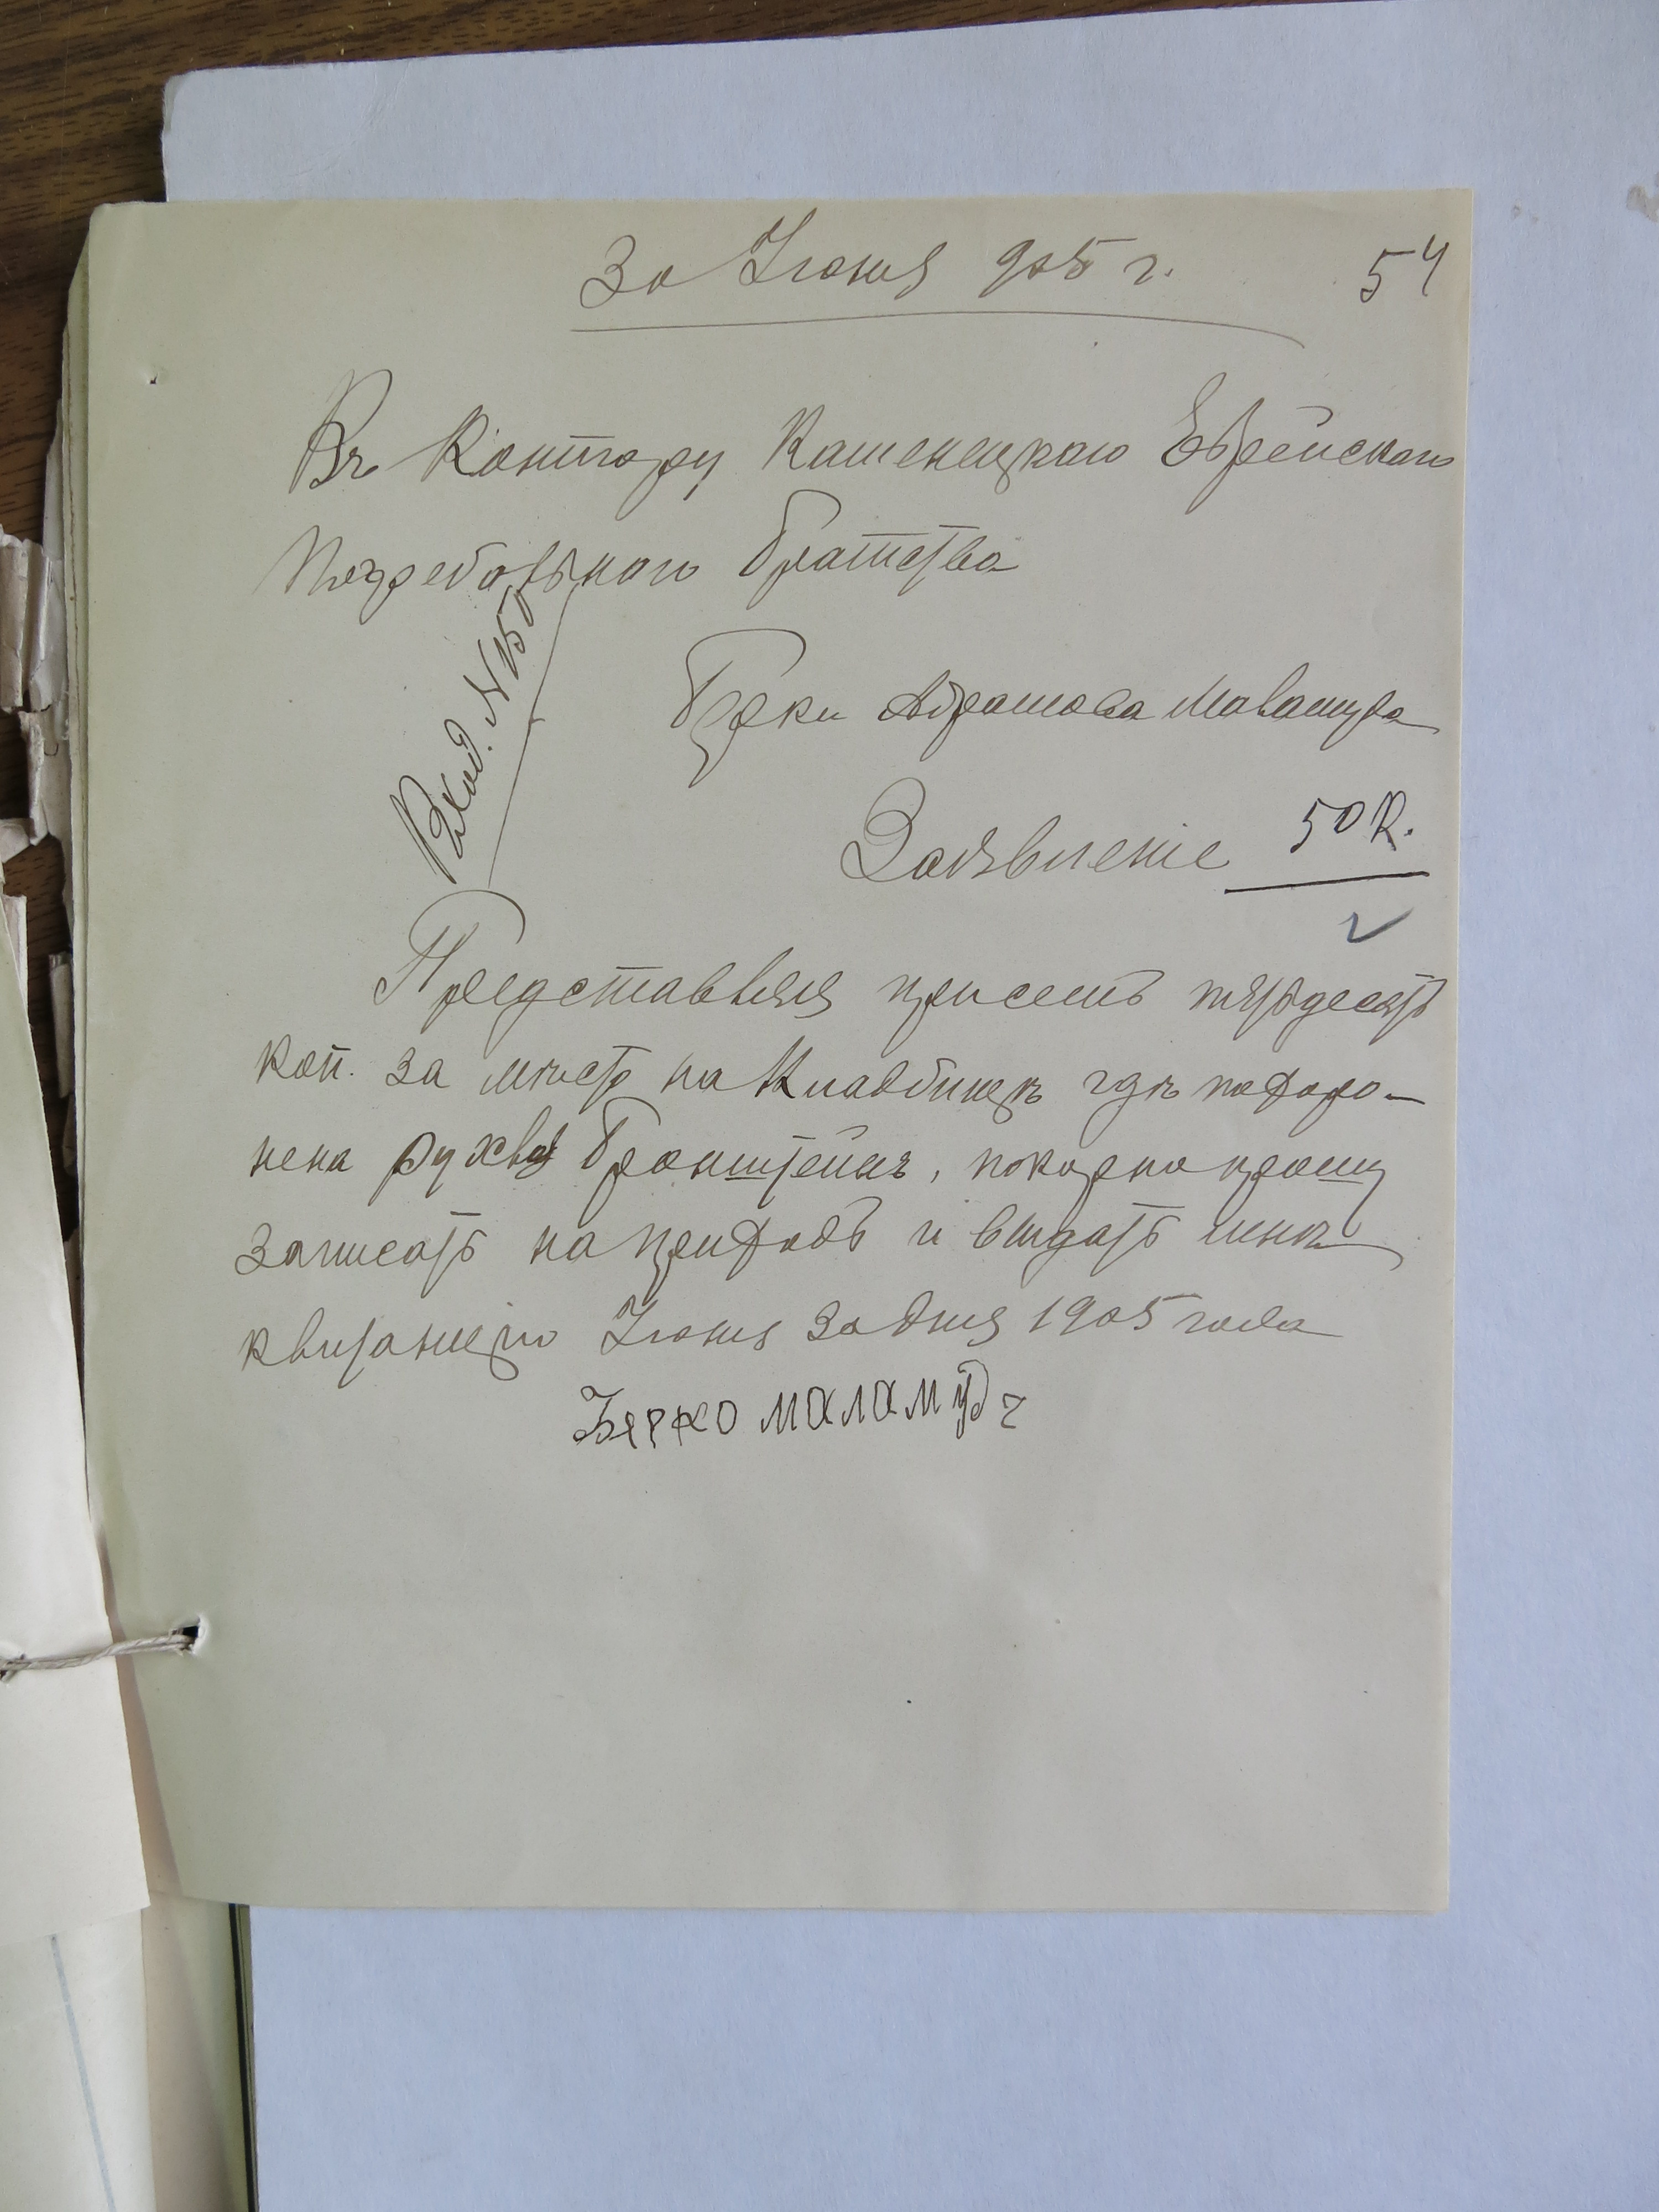 30 Іюня 905 г.
54
Въ Контору Каменецкаго Еврейскаго
Погребального братства
Вход. №
Берки Абрамова Маламуда
Заявленіе 50 к.
Представляя при семъ пятьдесятъ
коп. за место на кладбище где похоро-
нена Рухля Бронштейнъ, покорно прошу
записать на приходъ и выдать мне
квитанцію Іюня 30 дня 1905 года
Берко маламудъ